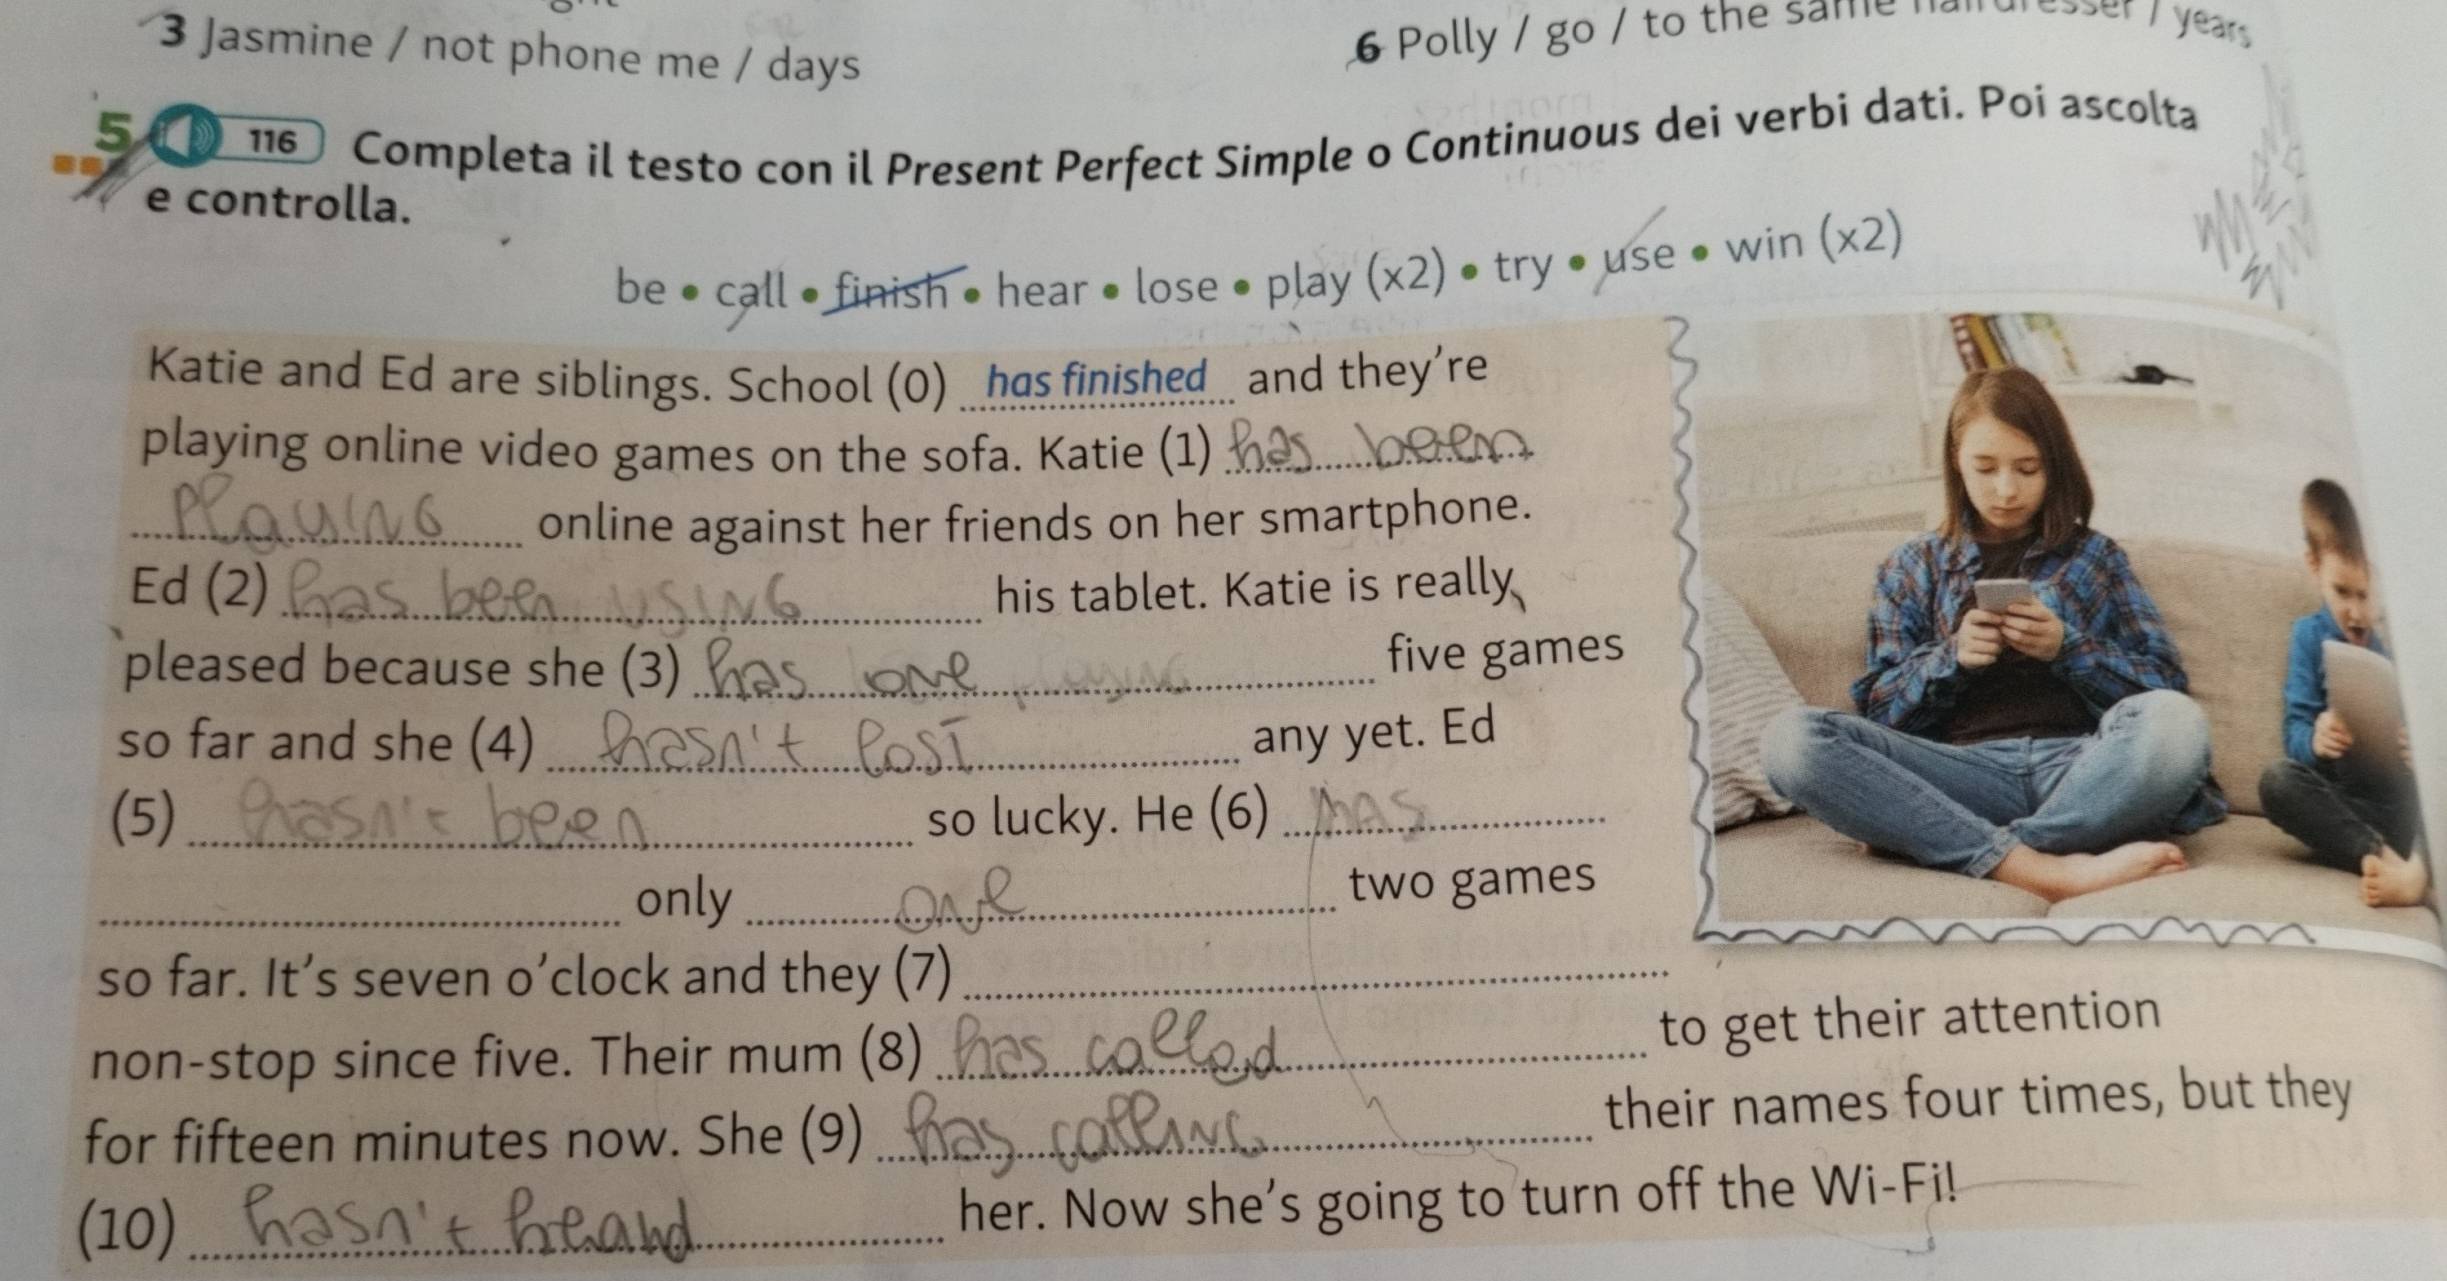 3 Jasmine / not phone me / days
6 Polly / go / to the same hairdresser / years
5 116 Completa il testo con il Present Perfect Simple o Continuous dei verbi dati. Poi ascolta
e controlla.
be • call • finish • hear • lose • play (x2) • try • use • win (x2)
Katie and Ed are siblings. School (0) has finished and they're
playing online video games on the sofa. Katie (1) has been
PLAYING online against her friends on her smartphone.
Ed (2) has been USING his tablet. Katie is really
pleased because she (3) has one five games
so far and she (4) hasn't lost any yet. Ed
(5) hasn't been so lucky. He (6) has
only one two games
so far. It's seven o'clock and they (7)
non-stop since five. Their mum (8) has called to get their attention
for fifteen minutes now. She (9) has calling their names four times, but they
(10) hasn't heard her. Now she's going to turn off the Wi-Fi!